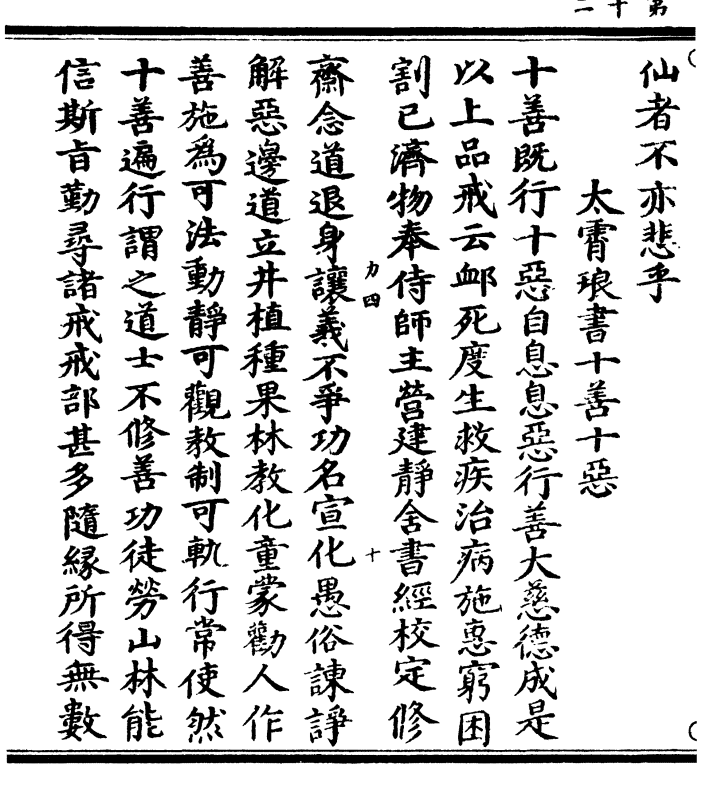 第十二
仙者不亦悲乎
太霄琅書十善十惡
十善既行十惡自息息惡行善大慈德成是
以上品戒云卹死度生救疾治病施惠窮困
割己濟物奉侍師主營建靜舍書經校定修
力四
十
齋念道退身讓義不爭功名宣化愚俗諫諍
解惡邊道立井植種果林教化童蒙勸人作
善施為可法動靜可觀教制可軌行常使然
十善遍行謂之道士不修善功徒勞山林能
信斯旨勤尋諸戒戒部甚多隨緣所得無數